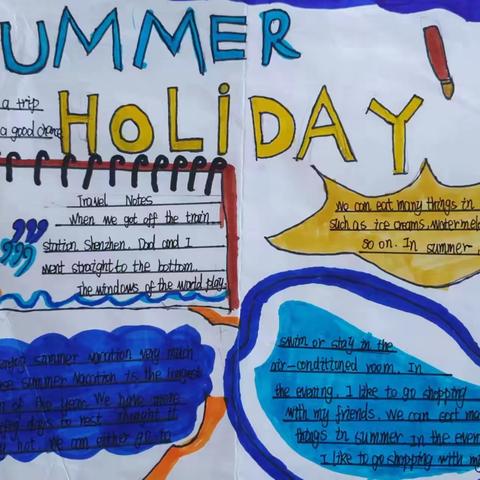 UMMER
HOLiDAY
a trip
a good
Travel Notes
When we got off the train
station Shenzhen. Dad and I
went straight to the bottom.
The windows of the world play
We can eat many things in
such as ice creams, watermelo
so on. In summer
summer vacation very much
summer vacation is the longest
of the year. We have more
days to rest. Thought it
hot. We can either go to
swim or stay in the
air-conditioned room. In
the evening, I like to go shopping
with my friends. We can eat ma
things in summer In the even
I like to go shopping with my